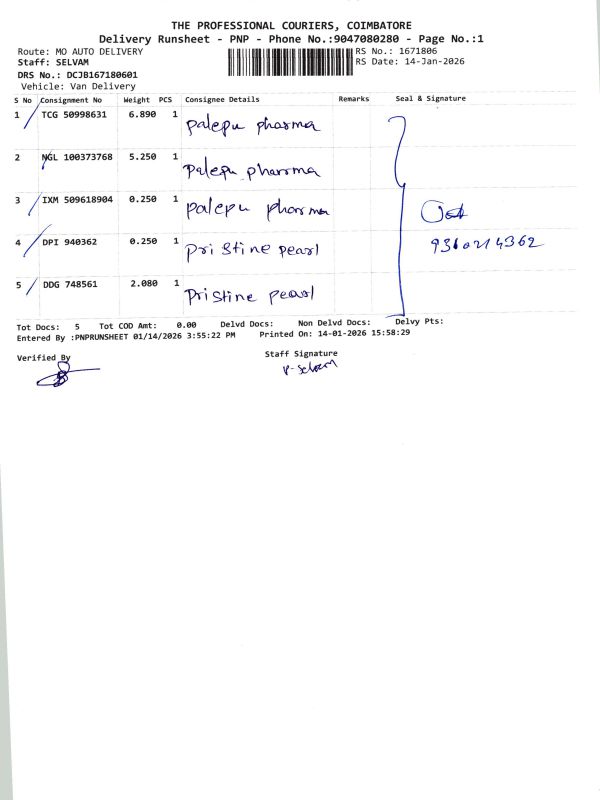 THE PROFESSIONAL COURIERS, COIMBATORE
Delivery Runsheet - PNP - Phone No.:9047080280 - Page No.:1
Route: MO AUTO DELIVERY RS No.: 1671806
Staff: SELVAM RS Date: 14-Jan-2026
DRS No.: DCJB167180601
Vehicle: Van Delivery
S No Consignment No Weight PCS Consignee Details Remarks Seal & Signature
1 TCG 50998631 6.890 1 palepu pharma
2 NGL 100373768 5.250 1 palepu pharma
3 IXM 509618904 0.250 1 palepu pharma
4 DPI 940362 0.250 1 pristine pearl 9360214362
5 DDG 748561 2.080 1 pristine pearl
Tot Docs: 5 Tot COD Amt: 0.00 Delvd Docs: Non Delvd Docs: Delvy Pts:
Entered By :PNPRUNSHEET 01/14/2026 3:55:22 PM Printed On: 14-01-2026 15:58:29
Verified By Staff Signature
P-Selvam